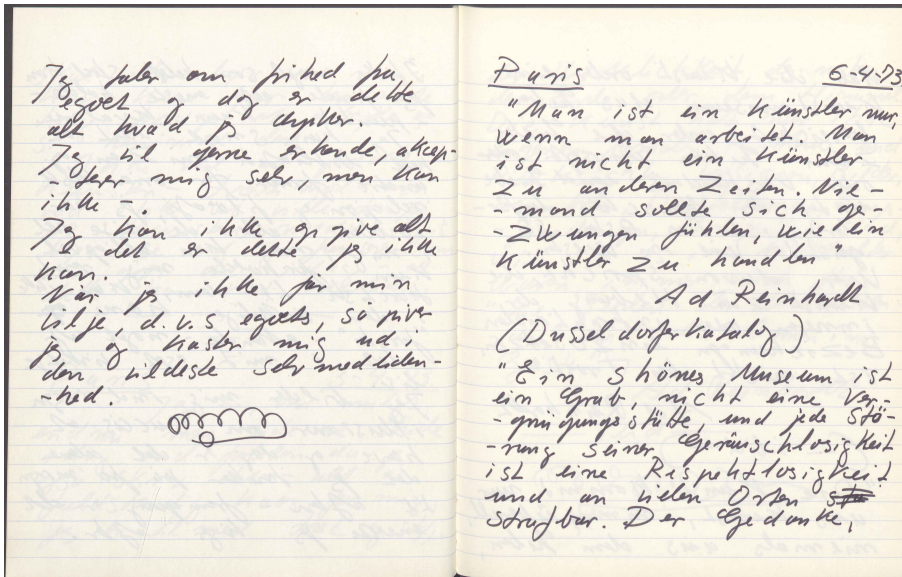 Jeg taler om frihed fra
egoet og dog er dette
alt hvad jeg dyrker.
Jeg vil gerne erkende, aksep-
-terer mig selv, men kan
ikke –.
Jeg kan ikke gi give alt
& det er dette jeg ikke
kan.
Når jeg ikke får min
vilje, d.v.s egoets, så giver
jeg og kaster mig ud i
den vildeste selvmedliden-
-hed.
Paris 6-4-73
"Man ist ein Künstler nur,
wenn man arbeitet. Man
ist nicht ein Künstler
zu anderen Zeiten. Nie-
-mand sollte sich ge-
-zwungen fühlen, wie ein
Künstler zu handlen"
Ad Reinhardt
(Dusseldorfer Katalog)
"Ein shönes Museum ist
ein Grab, nicht eine Ver-
-gnügungsstätte, und jede Stö-
-rung seiner Geräuschlosigkeit
ist eine Respektlosigkeit
und an vielen Orten
strafbar. Der Gedanke,